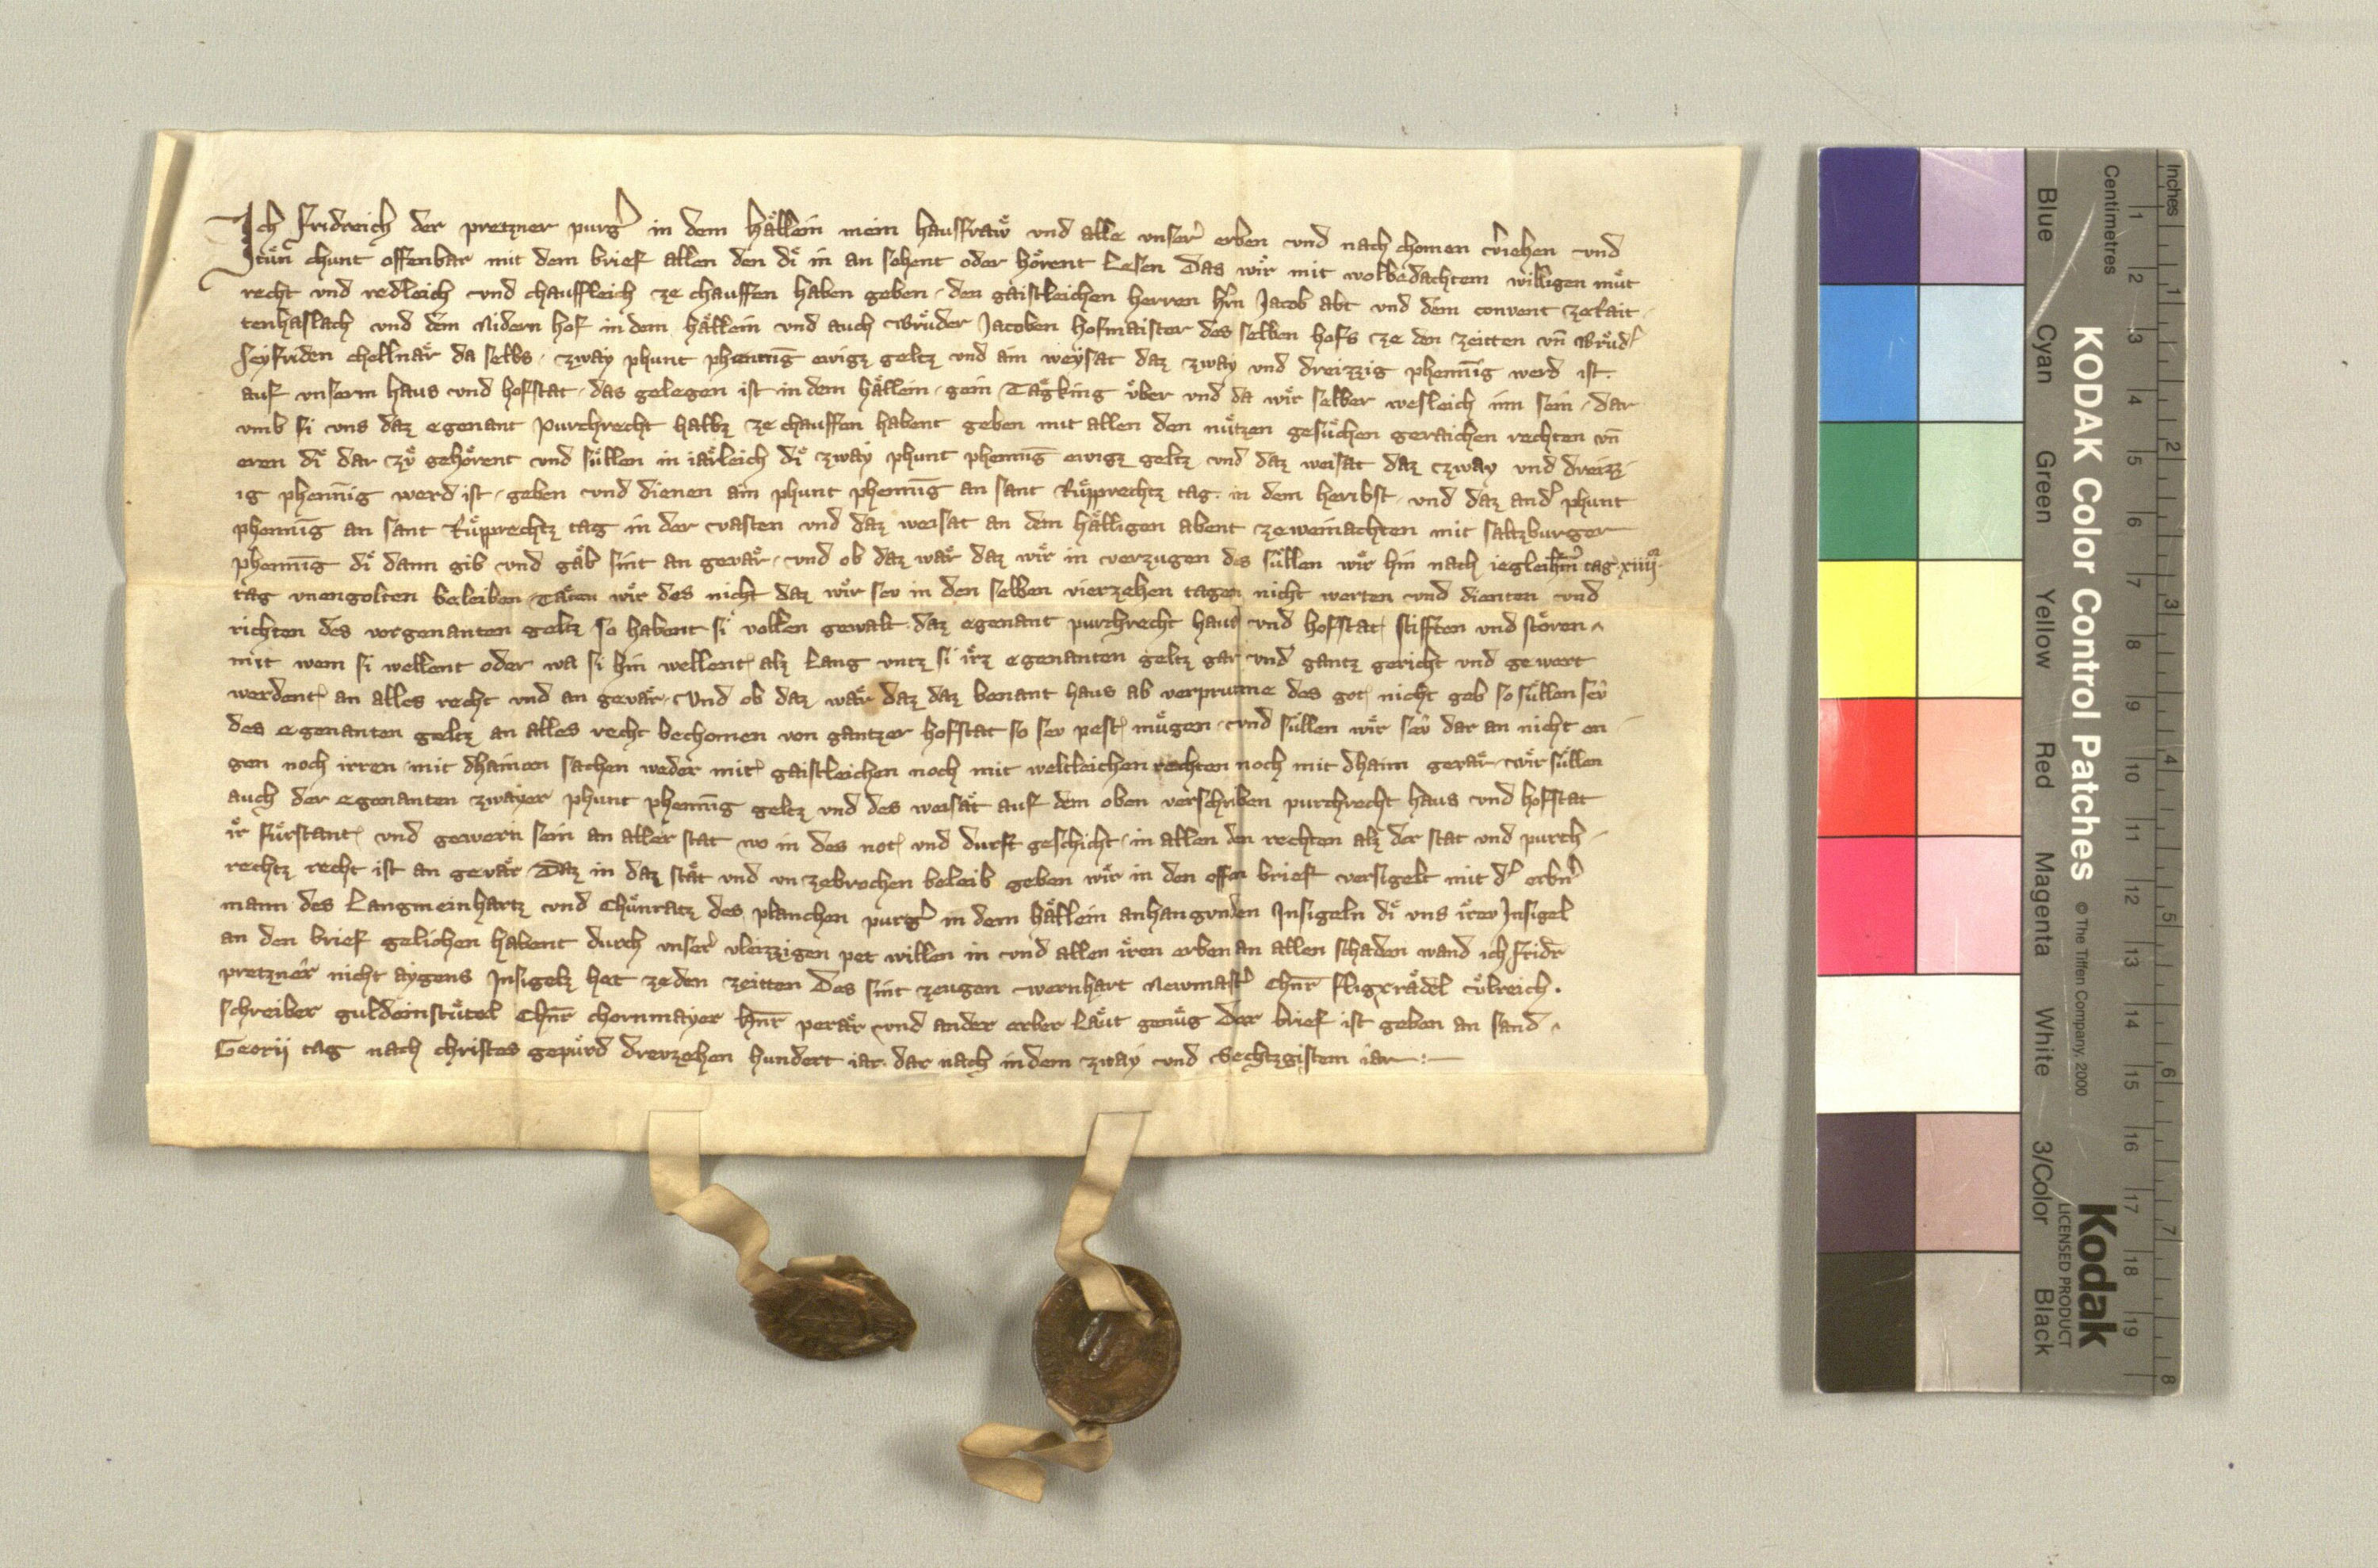 Ich Fridreich der pretzner purg͛ in dem Hällein mein hausfraw und alle unser͛ erben und nach chomen v͛iehen und
tuͤn chunt offenbar mit dem brief allen den di in an sehent oder hoͤrent Lesen Das wir mit wolbedachtem willigen muͤt
recht und redleich und chauffleich ze chauffen haben geben den gaistleichen herren hern Jacob abt und dem convent ze Rait
tenhaslach und dem Nidern hof in dem hällein und auch Bruͤder Jacoben hofmaister des selben hofs ze den zeitten vn̄ Bruͤd͛
Seyfriden chellnär da selbs zway phunt phenni̅g ewigz geltz und ain weysat daz zway und dreizzig phenni̅g werd ist
auf unserm haus und hofstat das gelegen ist in dem hällein gein Tägking über und da wir selber wesleich inn sein dar
umb si uns daz egenant purchrecht halbz ze chauffen habent geben mit allen den nützen gesuͤchen geraichen rechten vn̄
eren di dar zuͤ gehoͤrent und süllen in iärleich di zway phunt phenni̅g ewigz geltz und daz weisat daz czway und dreizz
ig phenni̅g werd ist geben und dienen ain phunt phenni̅g an sant Ruͤpprechtz tag in dem heribst und daz and͛ phunt
phenni̅g an sant Ruͤpprechtz tag in der vasten und daz weisat an dem hälligen abent ze weinachten mit saltzburger
phenni̅g di dann gib und gäb sint an gevär und ob daz wär daz wir in verzugen des süllen wir hin nach iegleichem tag xiiij
tag unengolten beleiben Täten wir des nicht daz wir sev in den selben vierzehen tagen nicht werten und dienten und
richten des vorgenanten geltz so habent si vollen gewalt daz egenant purchrecht haus und hofstat stifften und stoͤren
mit wem si wellent oder wa si hin wellent alz Lang untz si irz egenanten geltz gar und gantz gericht und gewert
werdent an alles recht und an gevär Und ob daz wär daz daz benant haus ab verprunne des got nicht geb so süllen sev
des egenanten geltz an alles recht bechomen von gantzer hofstat so sev pest mügen und süllen wir sev dar an nicht en
gen noch irren mit dhainen sachen weder mit gaistleichen noch mit weltleichen rechten noch mit dhainn gevär wir süllen
auch der egenanten zwayer phunt phenni̅g geltz und des weisät auf dem oben verschriben purchrecht haus und hofstat
ir fürstant und gewern sein an aller stat wo in des not und durft geschicht in allen den rechten alz der stat und purch
rechtz recht ist an gevär Daz in daz stät und un zebrochen beleib geben wir in den offen brief versigelt mit d͛ erbn͛
mann des Langmeinhartz und Chuͤnratz des planchen purg͛ in dem hällein anhangunden Insigeln di uns irev Insigel
an den brief gelichen habent durch unser͛ vleizzigen pet willen in und allen iren erben an allen schaden wand ich Fridr̄
pretzner͛ nicht aygens Insigelz het ze den zeitten Des sint zeugen Wernhart Newmast͛ Chunr̄ fligxrädel Uͤlreich
schreiber guldeinstütel Chunr̄ chornmayer Hnr̄ perär und ander erber Läut genuͤg Der brief ist geben an sand
Georij tag nach christes gepürd drevzehen hundert iar dar nach in dem zway und Sechtzgistem iar
KODAK Color Control Patches
© The Tiffen Company, 2000
Kodak
LICENSED PRODUCT
Blue Cyan Green Yellow Red Magenta White 3/Color Black
Centimetres 1 2 3 4 5 6 7 8 9 10 11 12 13 14 15 16 17 18 19
Inches 1 2 3 4 5 6 7 8